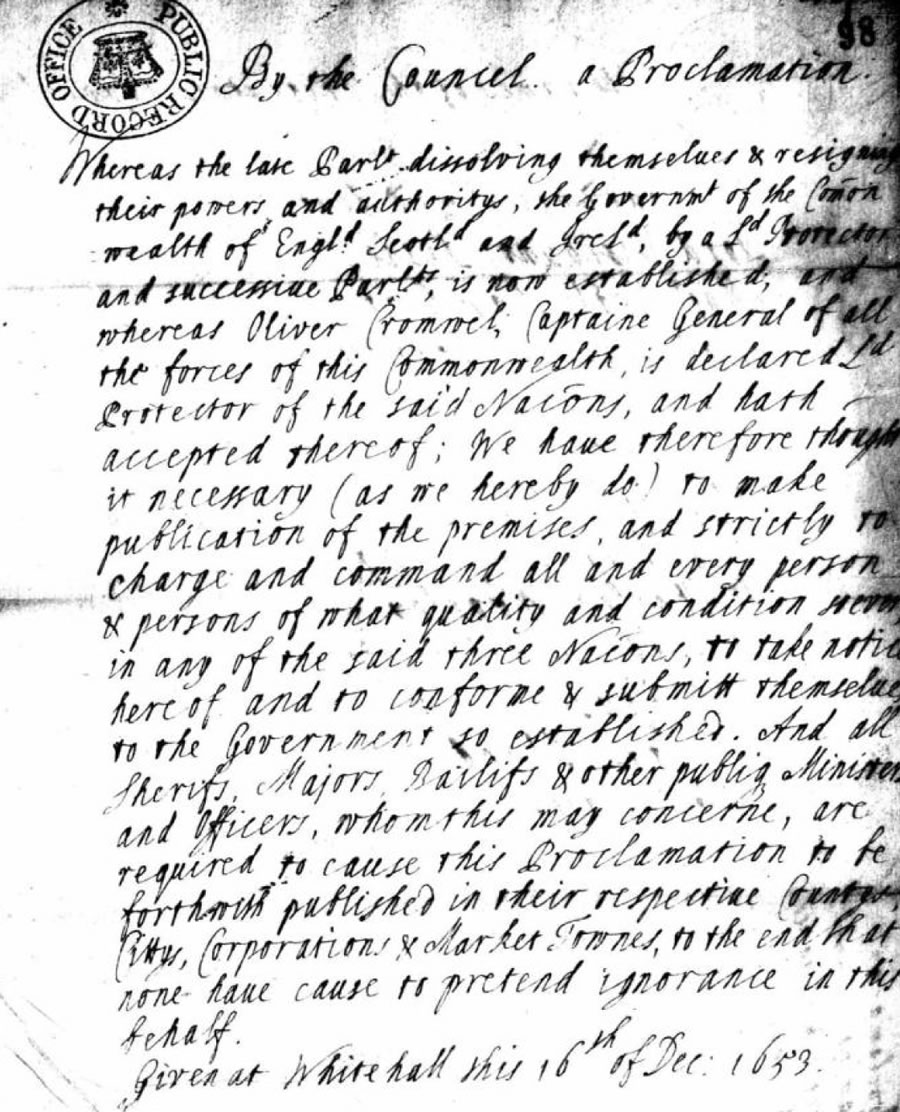 PUBLIC RECORD OFFICE
98
By the Councel. a Proclamation.
Whereas the late Parlt dissolving themselues & resigning
their powers and authoritys, the Governmt of the Com̄on
wealth of Engld. Scotld and Irels, by a Ld Protector
and successiue Parlts, is now established, and
whereas Oliver Cromwel, Captaine General of all
the forces of this Commonwealth, is declared Ld
Protector of the said Nac̄ons, and hath
accepted thereof; We haue therefore thought
it necessary (as we hereby do) to make
publication of the premises, and strictly to
charge and command all and every person
& persons of what quality and condition soever
in any of the said three Nac̄ons, to take notice
hereof and to conforme & submitt themselues
to the Government so established. And all
Sherifs, Majors, Bailifs & other publiq Ministers
and Officers, whom this may concerne, are
required to cause this Proclamation to be
forthwith published in their respective Countys,
Cittys, Corporations & Market Townes, to the end that
none haue cause to pretend ignorance in this
behalf.
Given at Whitehall this 16th of Dec: 1653.